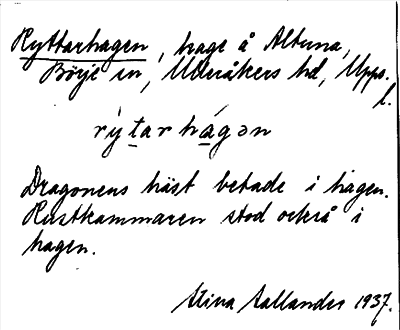 Ryttarhagen, hage å Altuna,
Börje sn, Ulleråkers hd, Upps.
l.
rýtarhágən
Dragonens häst betade i hagen.
Rustkammaren stod också i
hagen.
Stina Aallander 1937.